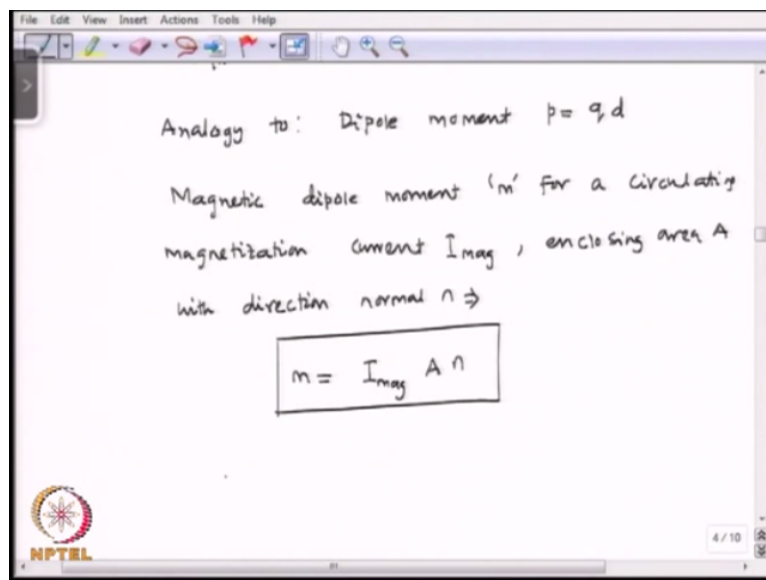 File Edit View Insert Actions Tools Help
Analogy to: Dipole moment p= q,d
Magnetic dipole moment 'm' for a circulating
magnetization current Imag , enclosing area A
with direction normal n ⇒
m = Imag A n
4/10
NPTEL